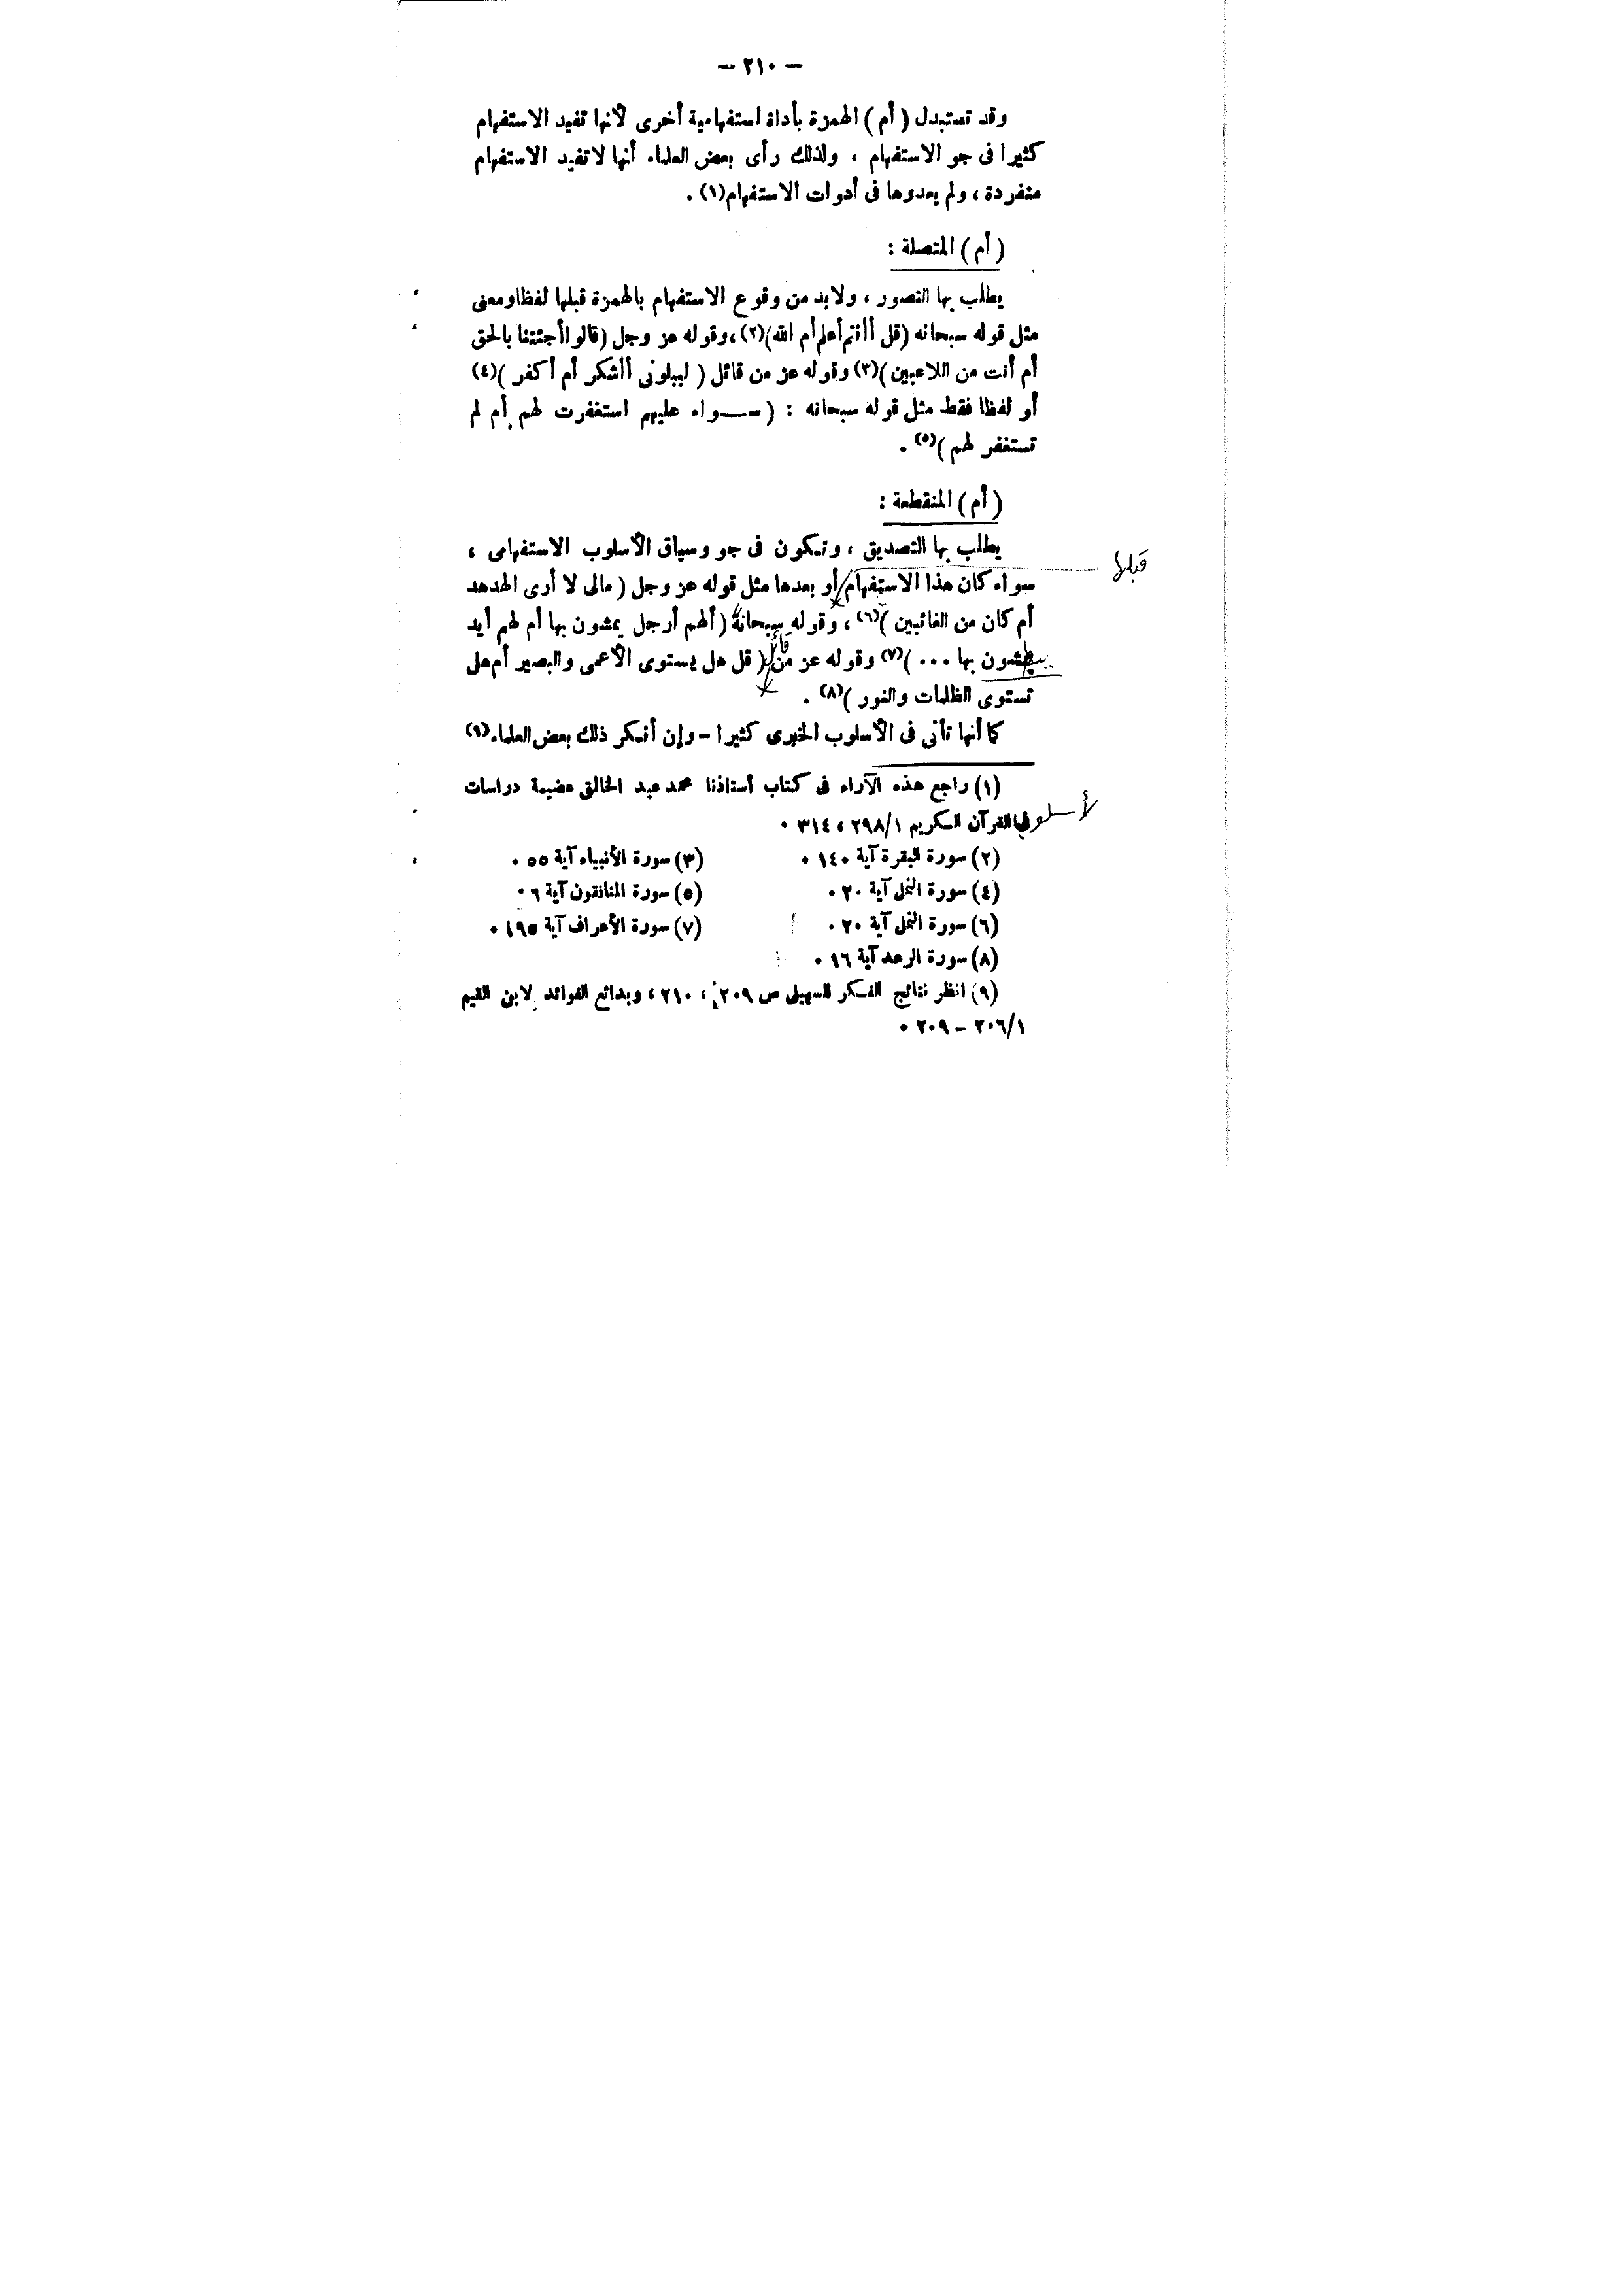 — ٢١٠ —
وقد تستبدل ( أم ) الهمزة بأداة استفهامية أخرى لأنها تفيد الاستفهام
كثيرا فى جو الاستفهام ، ولذلك رأى بعض العلماء أنها لا تفيد الاستفهام
منفردة ، ولم يعدوها فى أدوات الاستفهام(١) .
( أم ) المتصلة :
يطلب بها التصور ، ولابد من وقوع الاستفهام بالهمزة قبلها لفظا ومعنى
مثل قوله سبحانه (قل أأنتم أعلم أم الله)(٢)، وقوله عز وجل (قالوا أجئتنا بالحق
أم أنت من اللاعبين )(٣) وقوله عز من قائل ( ليبلونى أأشكر أم أكفر )(٤)
أو لفظا فقط مثل قوله سبحانه : ( ســـواء عليهم استغفرت لهم أم لم
تستغفر لهم )(٥) .
( أم ) المنقطعة :
يطلب بها التصديق ، وتكون فى جو وسياق الأسلوب الاستفهامى ،
سواء كان هذا الاستفهام قبلها أو بعدها مثل قوله عز وجل ( مالى لا أرى الهدهد
أم كان من الغائبين )(٦) ، وقوله سبحانه ( ألهم أرجل يمشون بها أم لهم أيد
يبطشون بها ... )(٧) وقوله عز من قائل ( قل هل يستوى الأعمى والبصير أم هل
تستوى الظلمات والنور )(٨) .
كما أنها تأتى فى الأسلوب الخبرى كثيرا – وإن أنكر ذلك بعض العلماء(٩)
(١) راجع هذه الآراء فى كتاب أستاذنا محمد عبد الخالق عضيمة دراسات
لأسلوب القرآن الكريم ٢٩٨/١ ، ٣١٤ .
(٢) سورة البقرة آية ١٤٠ . (٣) سورة الأنبياء آية ٥٥ .
(٤) سورة النمل آية ٢٠ . (٥) سورة المنافقون آية ٦ .
(٦) سورة النمل آية ٢٠ . (٧) سورة الأعراف آية ١٩٥ .
(٨) سورة الرعد آية ١٦ .
(٩) انظر نتائج الفكر للسهيلى ص ٢٠٩ ، ٢١٠ ، وبدائع الفوائد لابن القيم
٢٠٦/١ – ٢٠٩ .